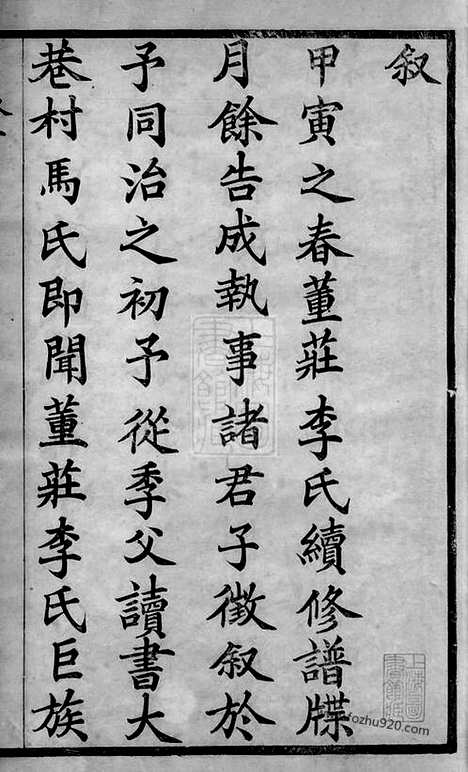 叙
甲寅之春董莊李氏續修譜牒
月餘告成執事諸君子徵叙於
予同治之初予從季父讀書大
巷村馬氏即聞董莊李氏巨族
fozhu920.com